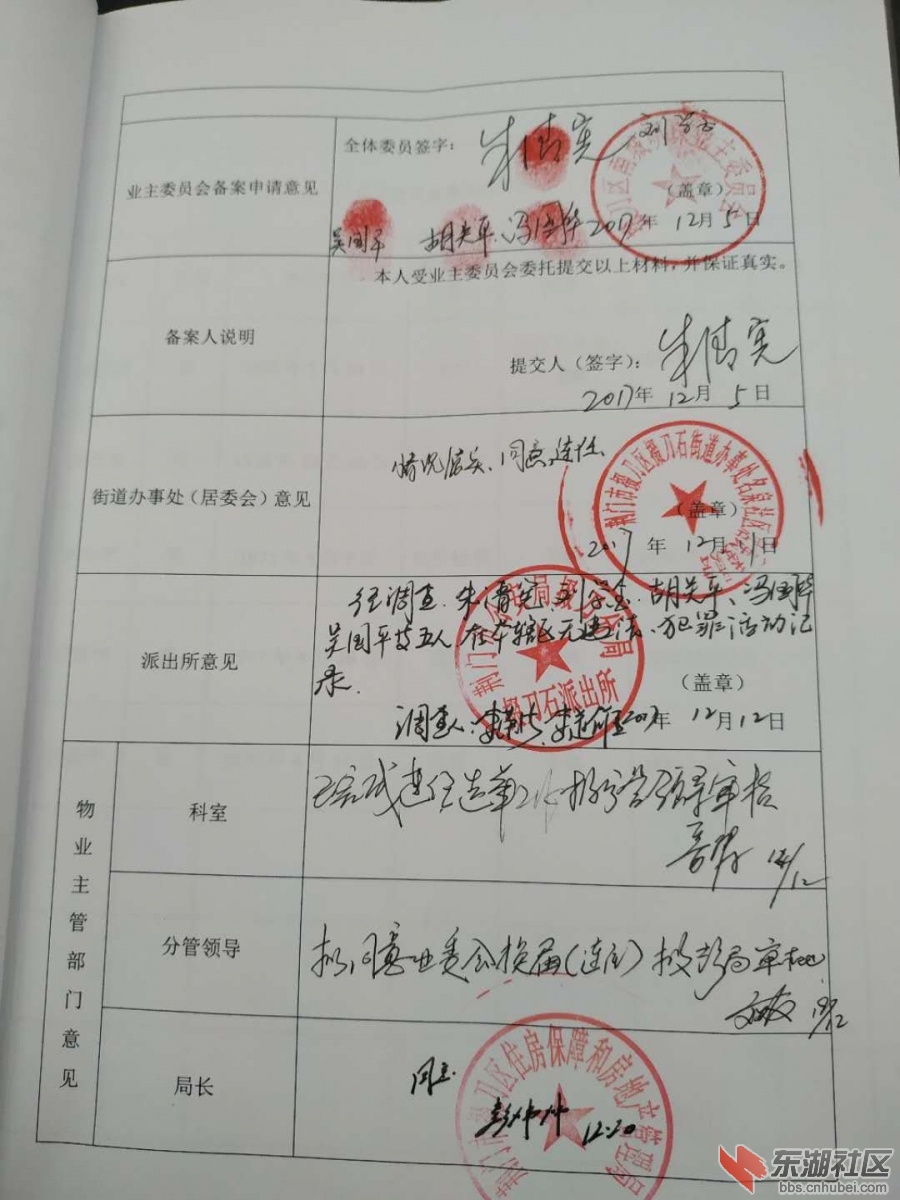 业主委员会备案申请意见
全体委员签字：
朱清宪
(盖章)
吴国平 胡关平 冯国华 2017年 12月 5日
备案人说明
本人受业主委员会委托提交以上材料，并保证真实。
提交人（签字）：朱清宪
2017年 12月 5日
街道办事处（居委会）意见
情况属实、同意连任
荆门市掇刀区掇刀石街道办事处名泉社区
(盖章)
2017年 12月 11日
派出所意见
经调查，朱清宪、刘学金、胡关平、冯国华
吴国平等五人在本辖区无违法、犯罪活动记
录。
荆门 公安局掇刀 分局
掇刀石派出所
(盖章)
调查人： 2017年 12月12日
物业主管部门意见
科室
已完成连任选举工作 报分管领导审核
分管领导
拟同意业委会换届（连任） 报彭局审批
局长
同意
12.20
荆门市掇刀区住房保障和房地产管理局
东湖社区
bbs.cnhubei.com